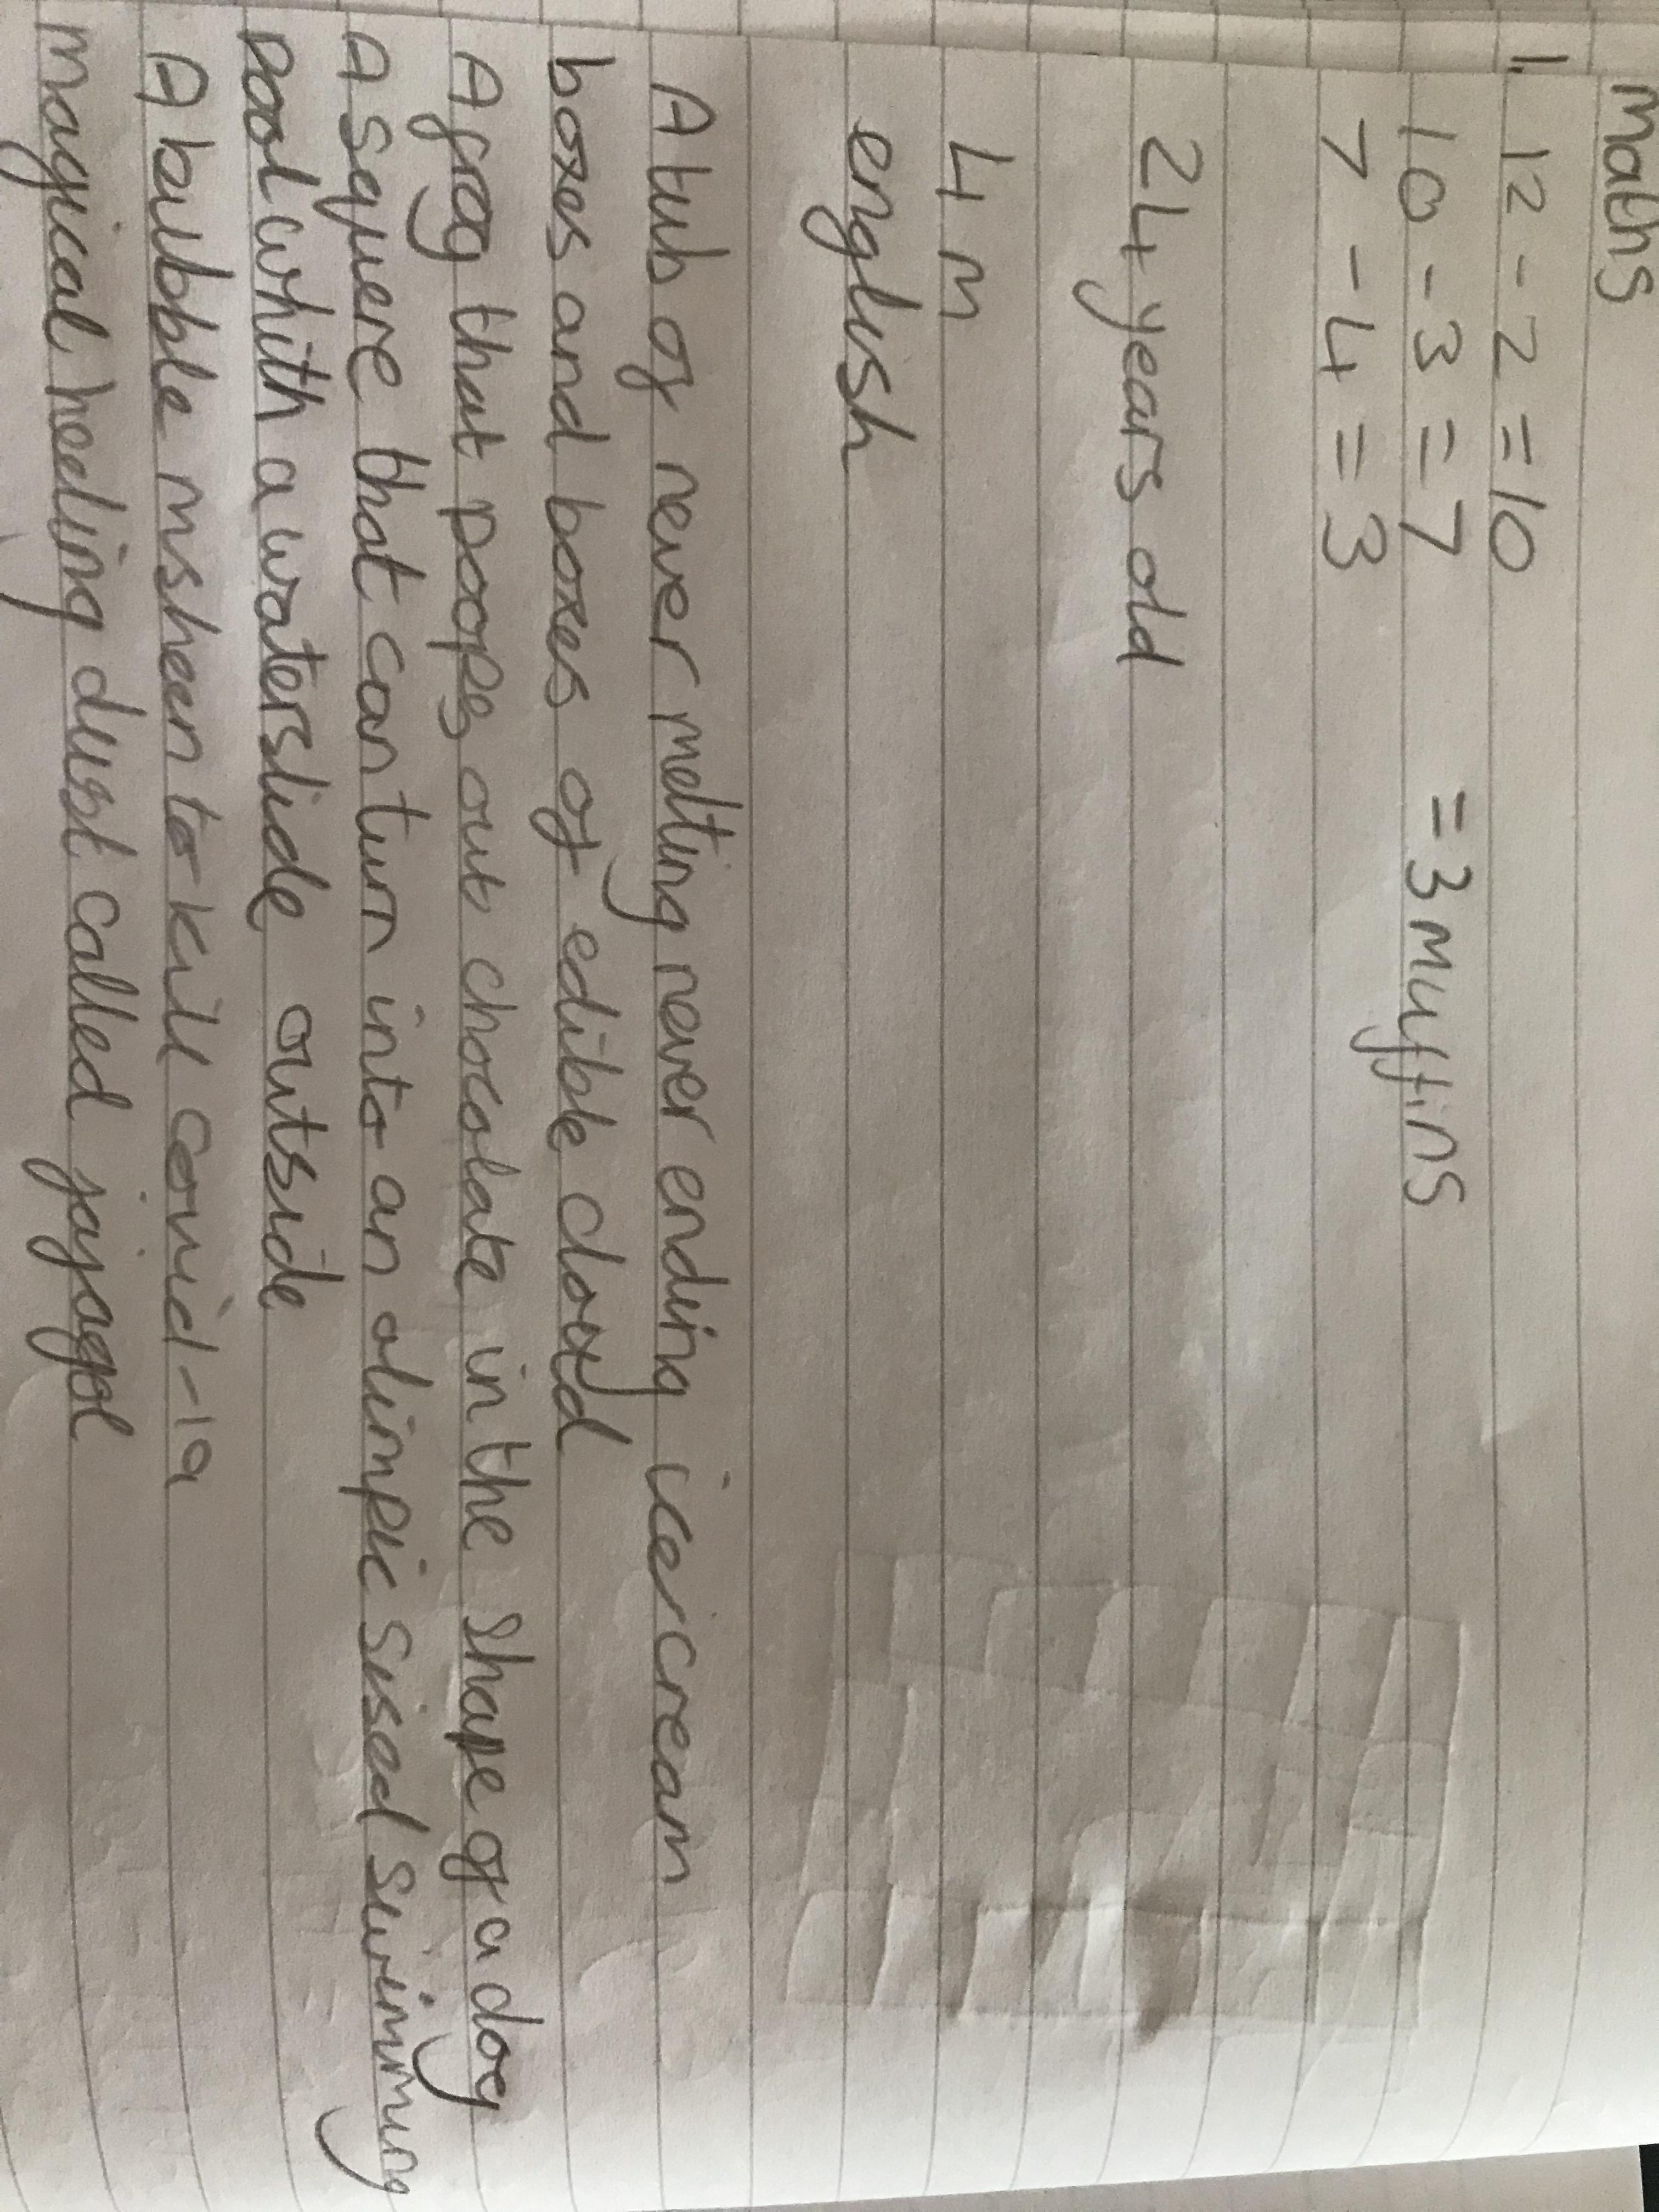 maths
1. 12 - 2 = 10
10 - 3 = 7 = 3 muffins
7 - 4 = 3
24 years old
4 m
english
A tub of never melting never ending icercream
boxes and boxes of edible cloud
A frog that poopes out chocolate in the shape of a dog
A squere that can turn into an olimpic sised swiming
pool whith a waterslide outside
A baubble msheen to kill covid-19
magical heeling dust called